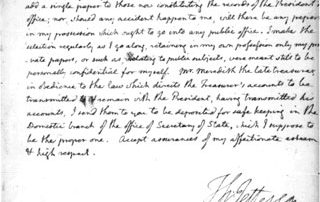 add a single paper to those now constituting the records of the President's
office; nor, should any accident happen to me, will there be any papers
in my possession which ought to go into any public office. I make the
selection regularly as I go along, retaining in my own possession only my pri-
vate papers, or such as, relating to public subjects, were meant still to be
personally confidential for myself. Mr. Meredith the late treasurer,
in obedience to the law which directs the Treasurer's accounts to be
transmitted to & remain with the President, having transmitted his
accounts, I send them to you to be deposited for safe keeping in the
Domestic branch of the office of Secretary of State, which I suppose to
be the proper one. Accept assurances of my affectionate esteem
& high respect.
Th: Jefferson